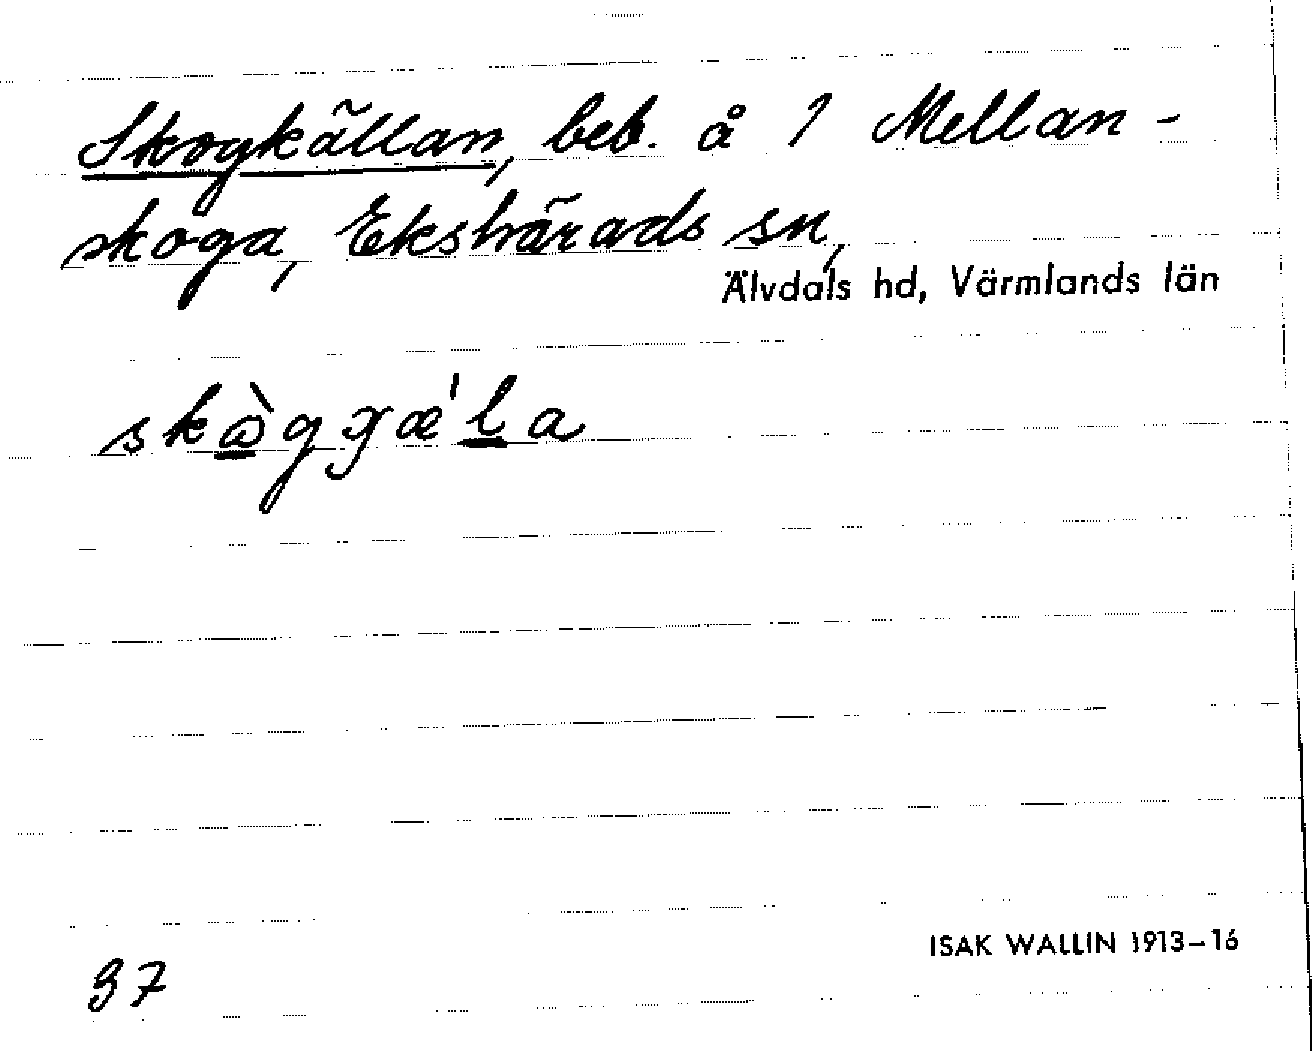 Skogkällan, beb. å 1 Mellan-
skoga, Ekshärads sn,
Älvdals hd, Värmlands län
skàggæ'la
ISAK WALLIN 1913–16
37